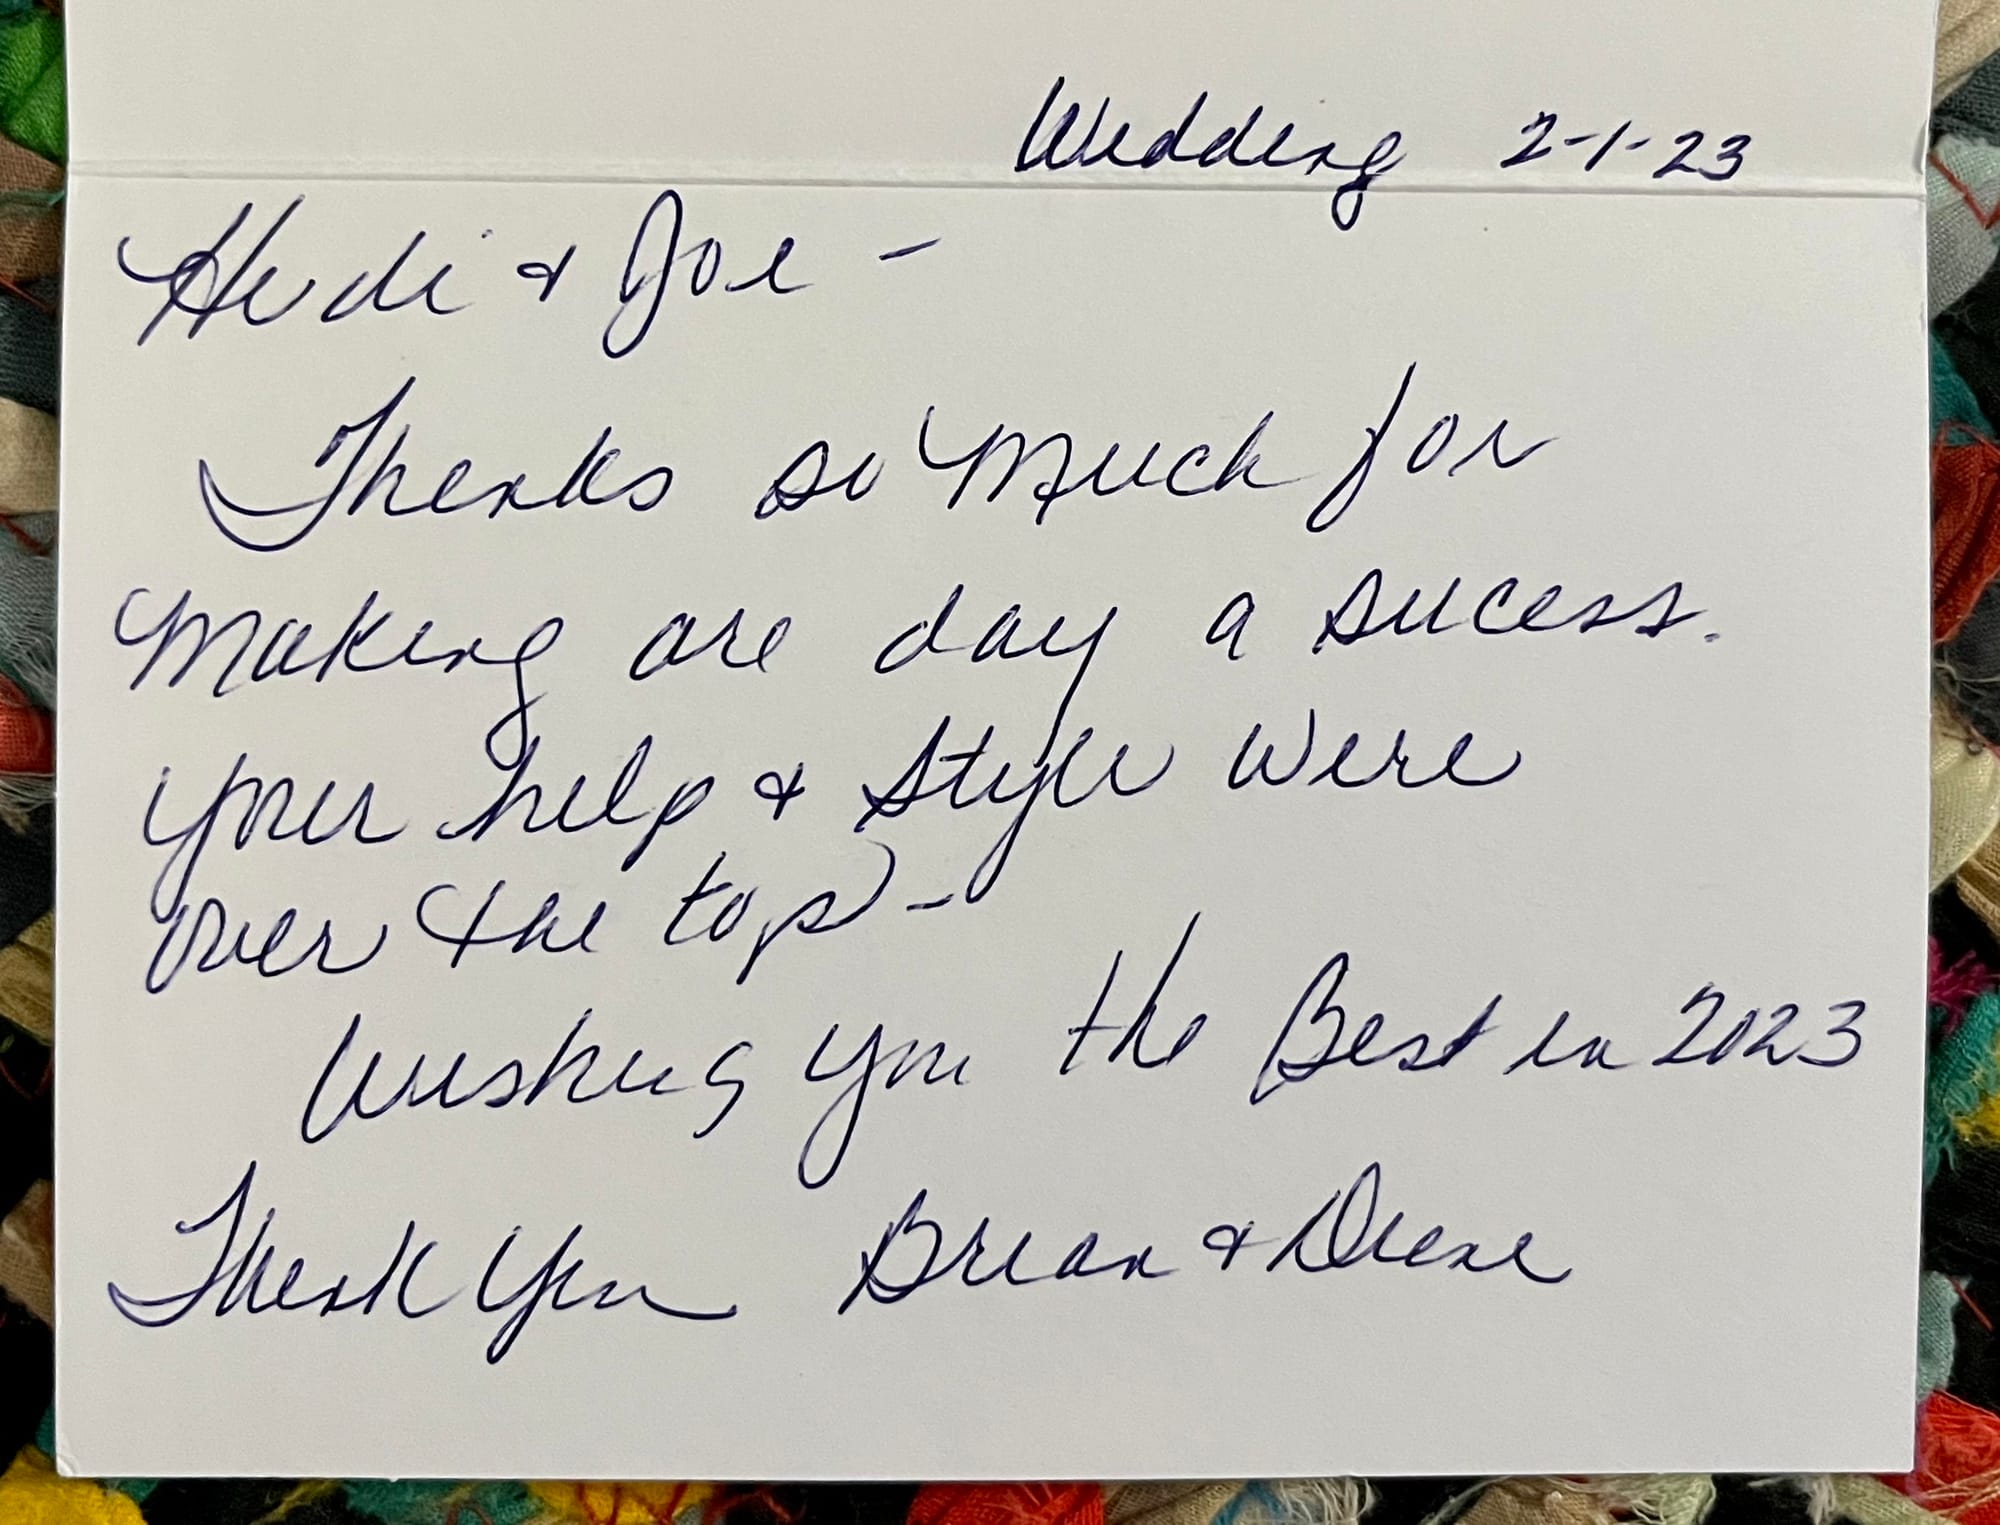 Wedding 2-1-23
Heidi & Joe -
Thanks so Much for
Making are day a sucess.
your help & Style were
over the top -
Wishing you the Best in 2023
Thank You Brian &